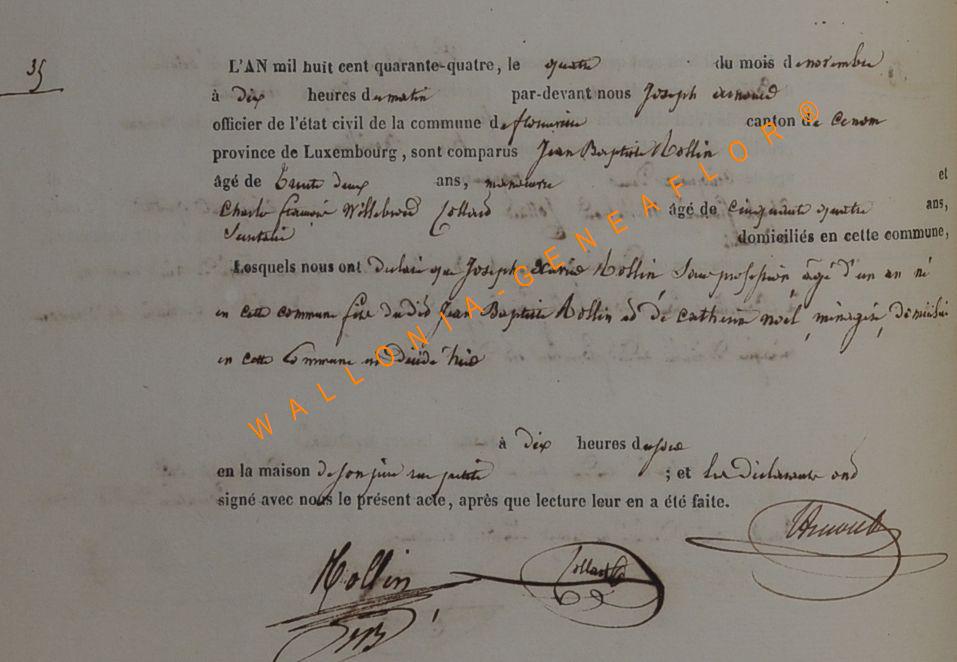 35
L'AN mil huit cent quarante-quatre, le quatre du mois de novembre
à dix heures du matin par-devant nous Joseph Arnould
officier de l'état civil de la commune de canton de
province de Luxembourg, sont comparus Jean Baptiste Hollin
âgé de trente deux ans, manoeuvre et
Charle Willebrod Collard âgé de cinquante quatre ans,
domiciliés en cette commune,
Lesquels nous ont déclaré que Joseph Hollin sans profession âgé d'un an né
en cette commune fils du dit Jean Baptiste Hollin et de catherine noël, ménagère, domiciliés
en cette Commune est décédé hier
à dix heures du soir
en la maison de son père ; et les déclarants ont
signé avec nous le présent acte, après que lecture leur en a été faite.
Arnould
Hollin Collard
WALLONIA-GENEAFLOR®